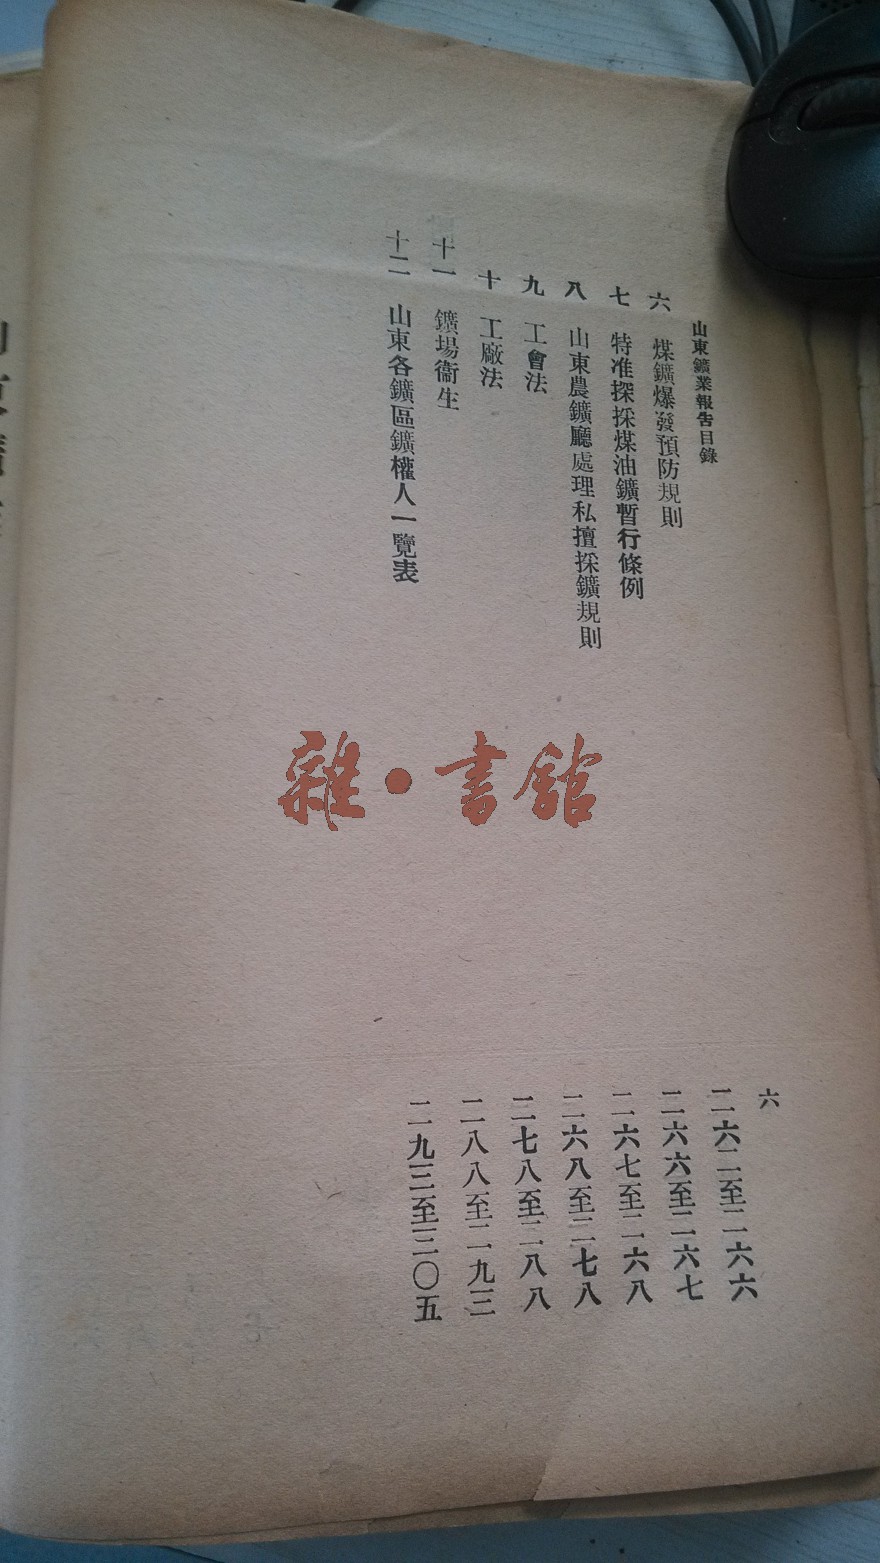 山東鑛業報告目錄 六
六 煤鑛爆發預防規則 二六二至二六六
七 特准探採煤油鑛暫行條例 二六六至二六七
八 山東農鑛廳處理私擅採鑛規則 二六七至二六八
九 工會法 二六八至二七八
十 工廠法 二七八至二八八
十一 鑛場衞生 二八八至二九三
十二 山東各鑛區鑛權人一覽表 二九三至三〇五
雜·書館